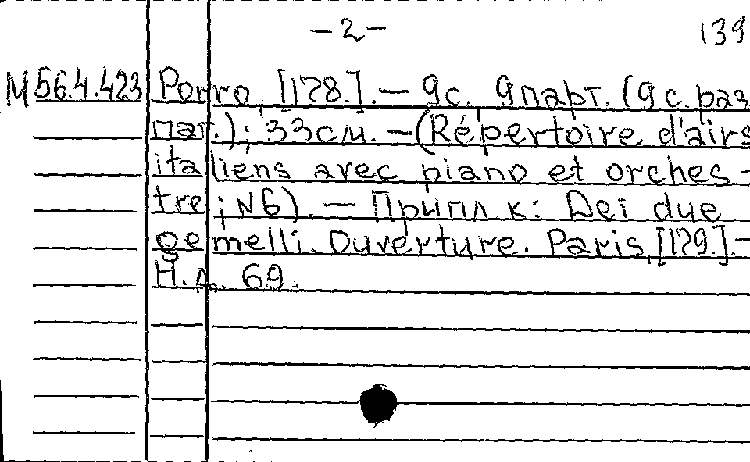 -2-
139
M 56.4.423 Porro, [178.]. – 9с. 9парт. (9с. раз.
паг.); 33см. – (Répertoire d'airs
italiens avec piano et orches-
tre; N6). – Припл к: Dei due
gemelli. Ouverture. Paris, [179.]. –
Н.Д. 69.